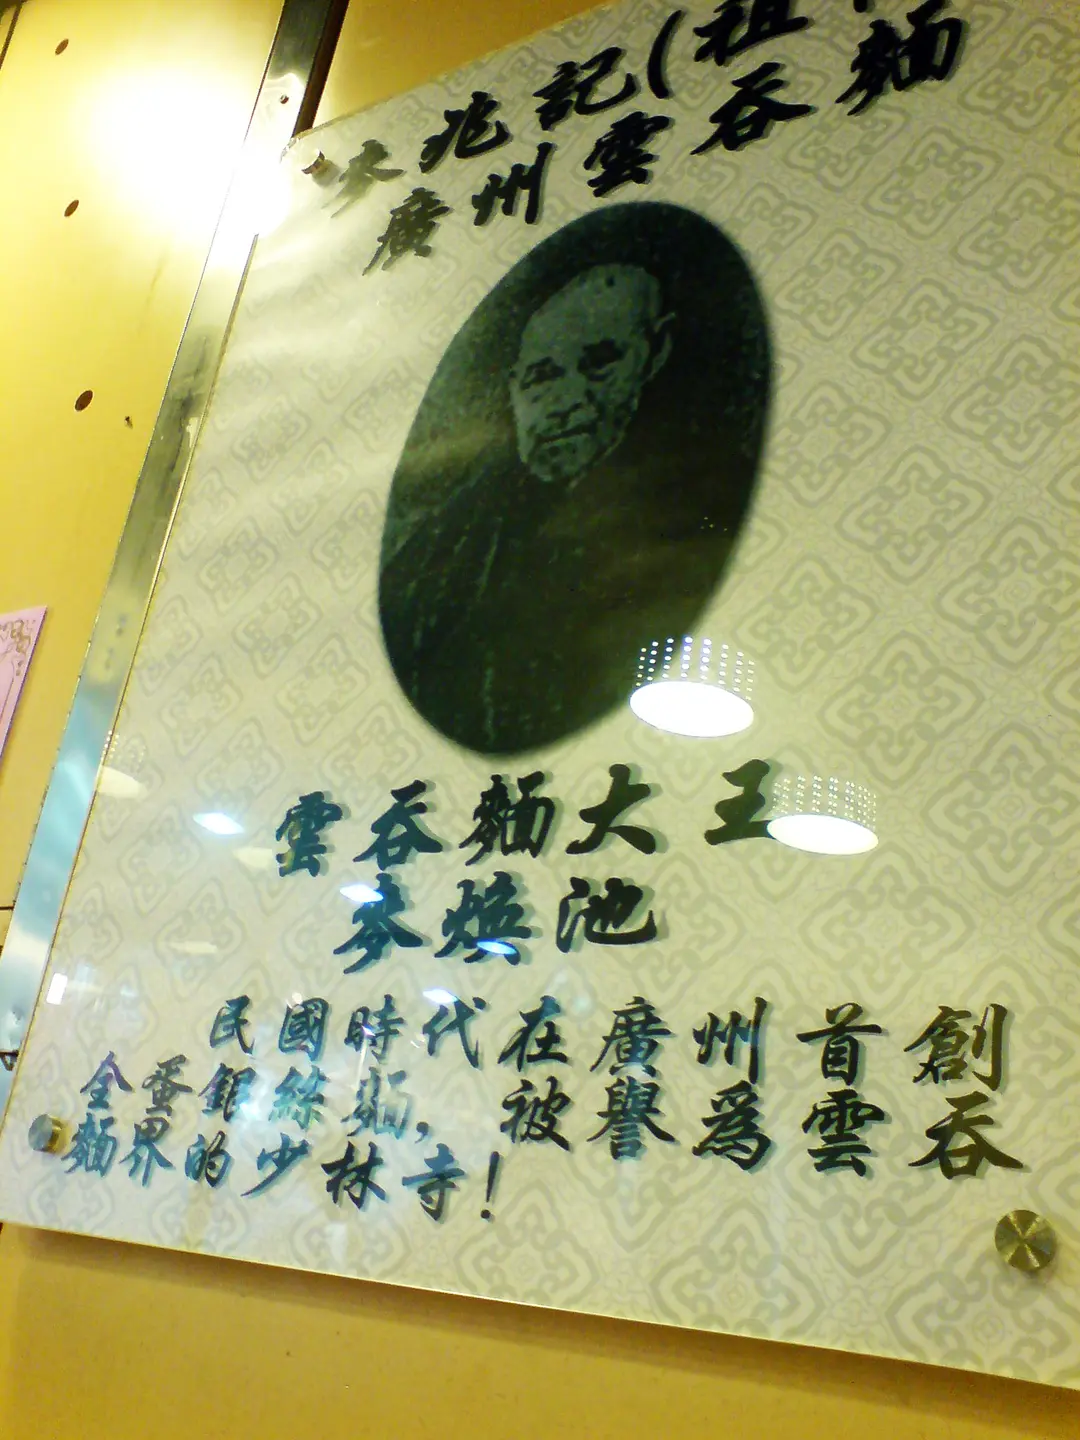 麥兆記(祖
廣州雲吞麵
雲吞麵大王
麥煥池
民國時代在廣州首創
全蛋銀絲麵，被譽為雲吞
麵界的少林寺！